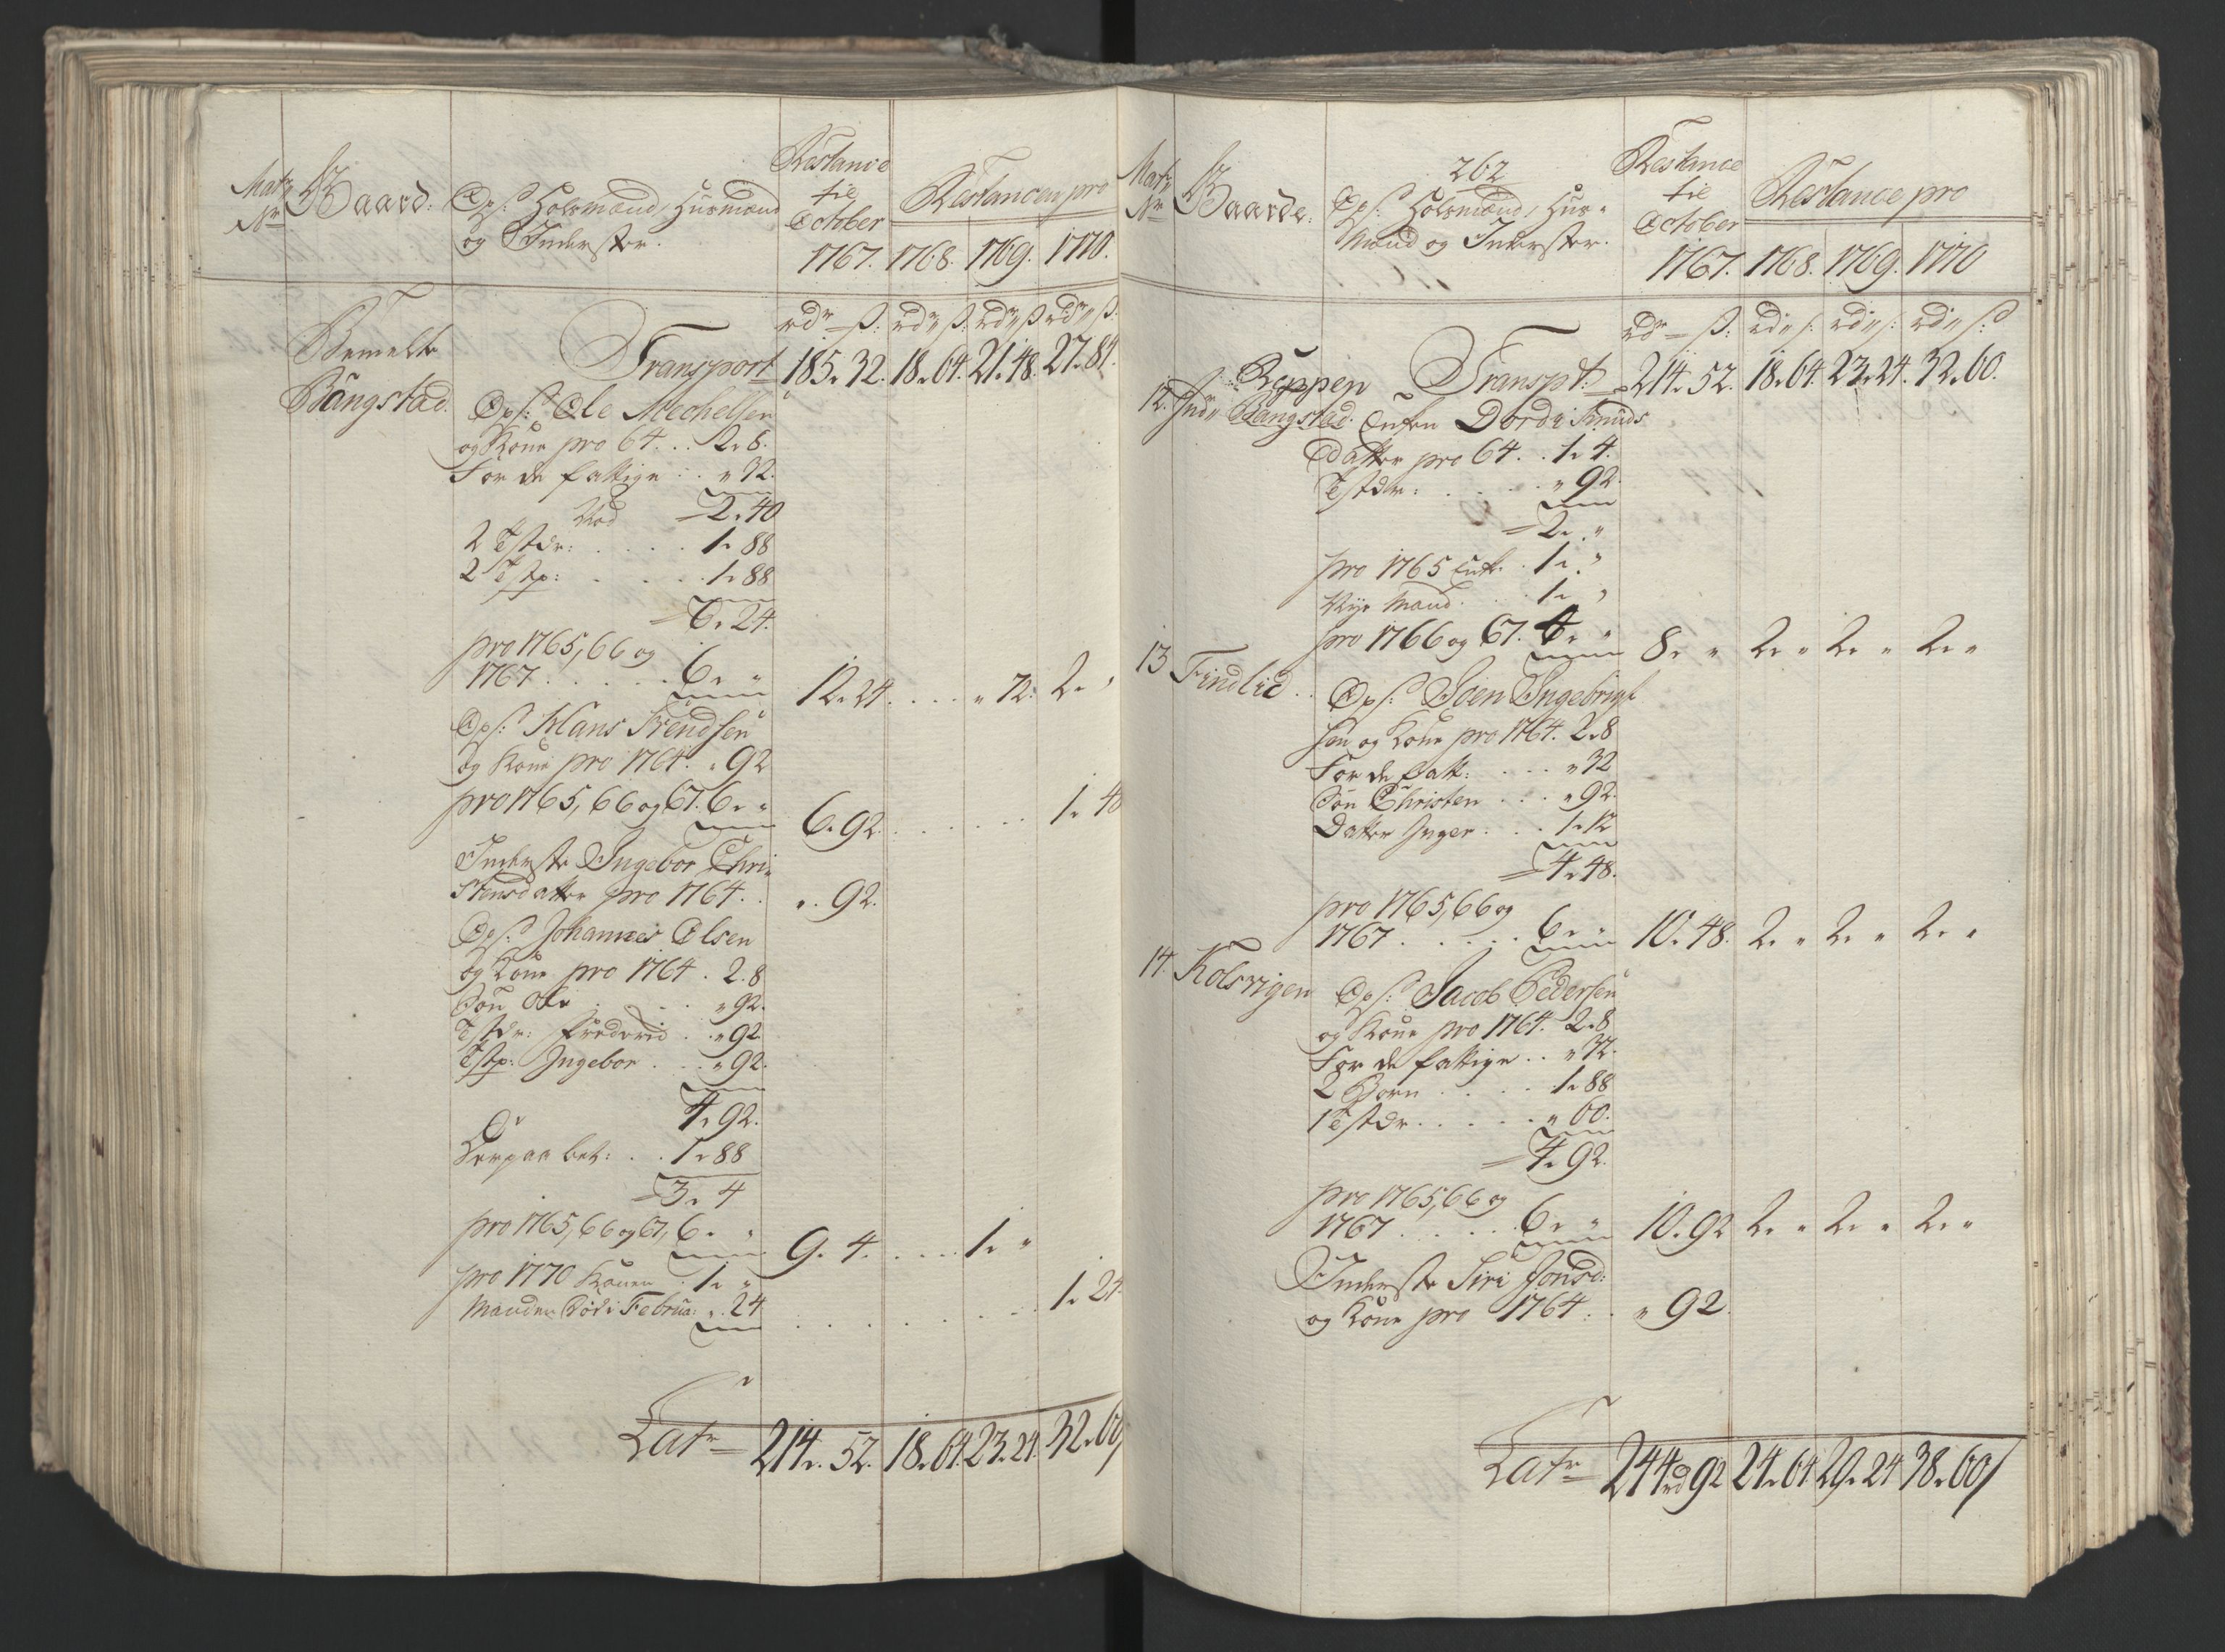 Matr Nr Gaard: Ops: Holsmænd, Husmænd og Inderster. Restance til October 1767. Restancen pro 1768. 1769. 1770.
rdr ß: rdr ß: rdr ß rdr ß:
Bemelte Transport 185. 32. 18. 64. 21. 48. 27. 84.
Bangstad. Ops: Ole Mechelsen
og Kone pro 64 . . 2. 8.
For de fattige . . " 32.
2. 40
2 Tstdr: . . . . 1. 88
2 Tstp: . . . . 1. 88
6. 24.
pro 1765, 66 og
1767 . . . . . 6. " 12. 24. . . . " 72. 2. "
Ops: Hans Svendsen
og Kone pro 1764. " 92
pro 1765, 66 og 67. 6. " 6. 92. . . . . . 1. 48
Inderste Ingebor Chri-
stensdatter pro 1764 . . " 92.
Ops: Johannes Olsen
og Kone pro 1764 . 2. 8
Søn Ole . . . " 92.
Tstdr: Friderid . . " 92
Tstp: Ingebor . . . " 92.
4. 92.
Derpaa bet: . . 1. 88
3. 4
pro 1765, 66 og 67, 6. " 9. 4. . . . . 1. "
pro 1770 Konen . 1. "
Manden Død i Februa: " 24 . . . . . . . 1. 24.
Latr 214. 52. 18. 64. 23. 24. 32. 60/
262
Matr Nr Gaarde: Ops: Holsmænd, Hus-
Mænd og Inderster. Restance til October 1767. Restance pro 1768. 1769. 1770
rdr ß: rd ß: rd ß: rd ß:
Reppen Transpt: 214. 52. 18. 64. 23. 24. 32. 60.
12. Bangstad. Enken Dordi Knuds
Datter pro 64 . . 1. 4.
Tstdr: . . . . . " 92.
2. "
pro 1765 Enk: . 1. "
Nye Mand . . . 1. "
pro 1766 og 67. 4. " 8. " 2. " 2. " 2. "
13 Findlid . . Ops: Soen Ingebrigt
sen og Kone pro 1764. 2. 8
For de fatt: . . . " 32
Søn Christen . . . " 92.
Datter Inger . . . 1. 12
4. 48.
pro 1765, 66 og
1767 . . . . . 6. " 10. 48. 2. " 2. " 2. "
14. Kolsvigen Ops: Jacob Pedersen
og Kone pro 1764. 2. 8
For de fattige . . " 32.
2 Børn . . . . 1. 88
1 Tstdr . . . . . " 60.
4. 92.
pro 1765, 66 og
1767 . . . . . 6. " 10. 92 2. " 2. " 2. "
Inderste Siri Jonsd:
og Kone pro 1764 . . " 92.
Latr 244 rd 92 24. 64 29. 24 38. 60/